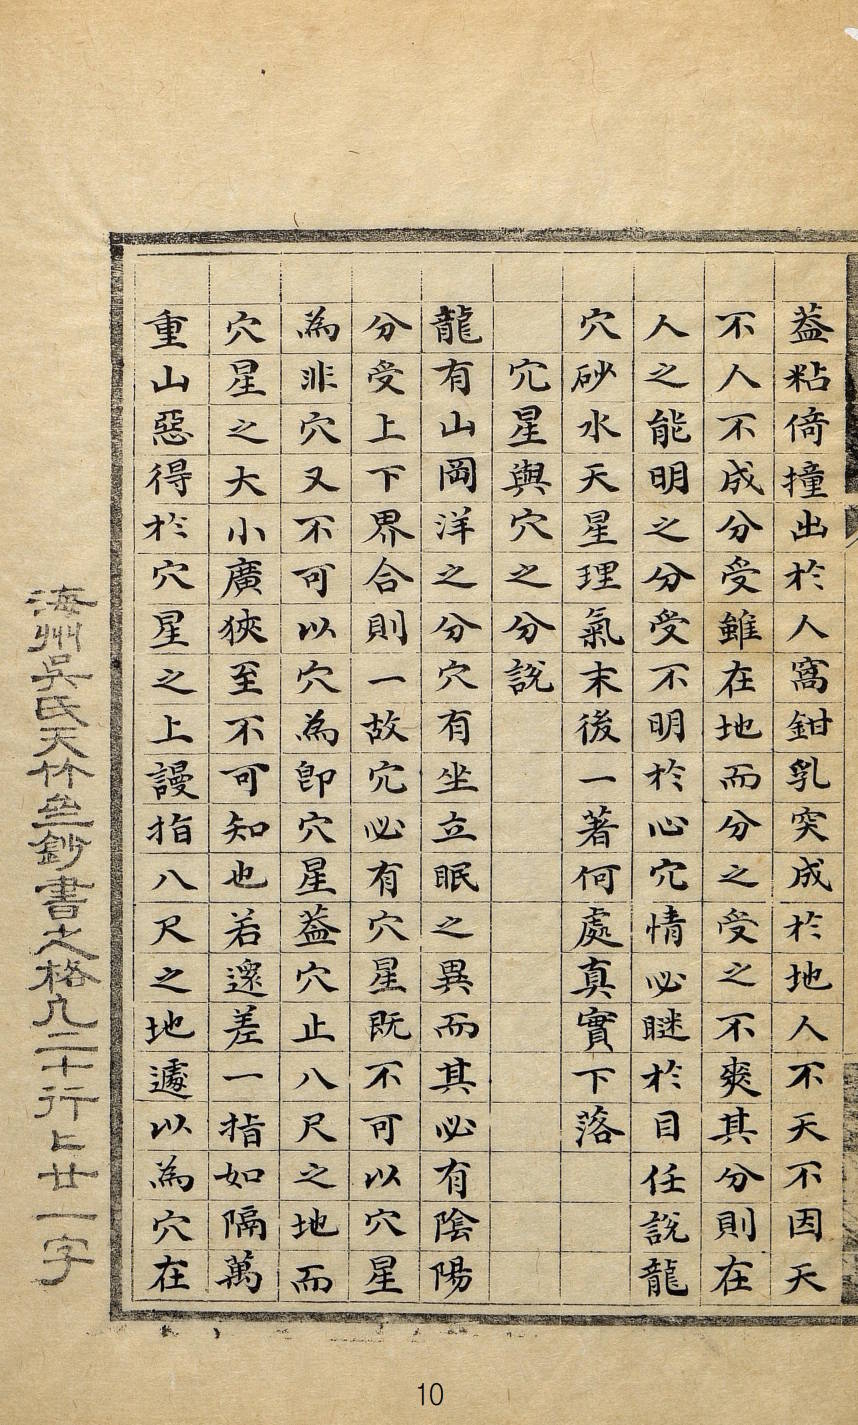 葢粘倚撞出於人窩鉗乳突成於地人不天不因天
不人不成分受雖在地而分之受之不爽其分則在
人之能明之分受不明於心穴情必瞇於目任說龍
穴砂水天星理氣末後一著何處真實下落
穴星與穴之分說
龍有山岡洋之分穴有坐立眠之異而其必有陰陽
分受上下界合則一故穴必有穴星既不可以穴星
為非穴又不可以穴為卽穴星葢穴止八尺之地而
穴星之大小廣狹至不可知也若還差一指如隔萬
重山惡得於穴星之上謾指八尺之地遽以為穴在
海州吳氏天竹盦鈔書之格凡二十行上廿一字
10